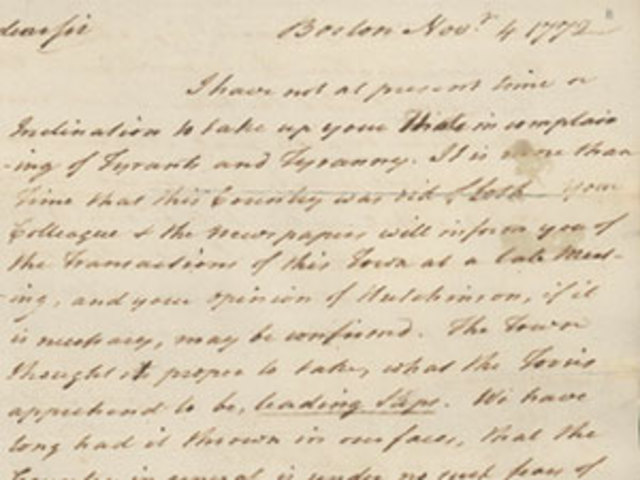 dear sir Boston Novr 4 1772
I have not at present time or
Inclination to take up your time in complain
-ing of Tyrants and Tyranny. It is more than
time that this Country was rid of both your
Colleague & the newspapers will inform you of
the Transactions of this Town at a late Meet-
-ing, and your opinion of Hutchinson, if it
is necessary, may be confirmd. The Town
thought it proper to take, what the Tories
apprehend to be, leading Steps. We have
long had it thrown in our faces, that the
Country in general is under no such fears of